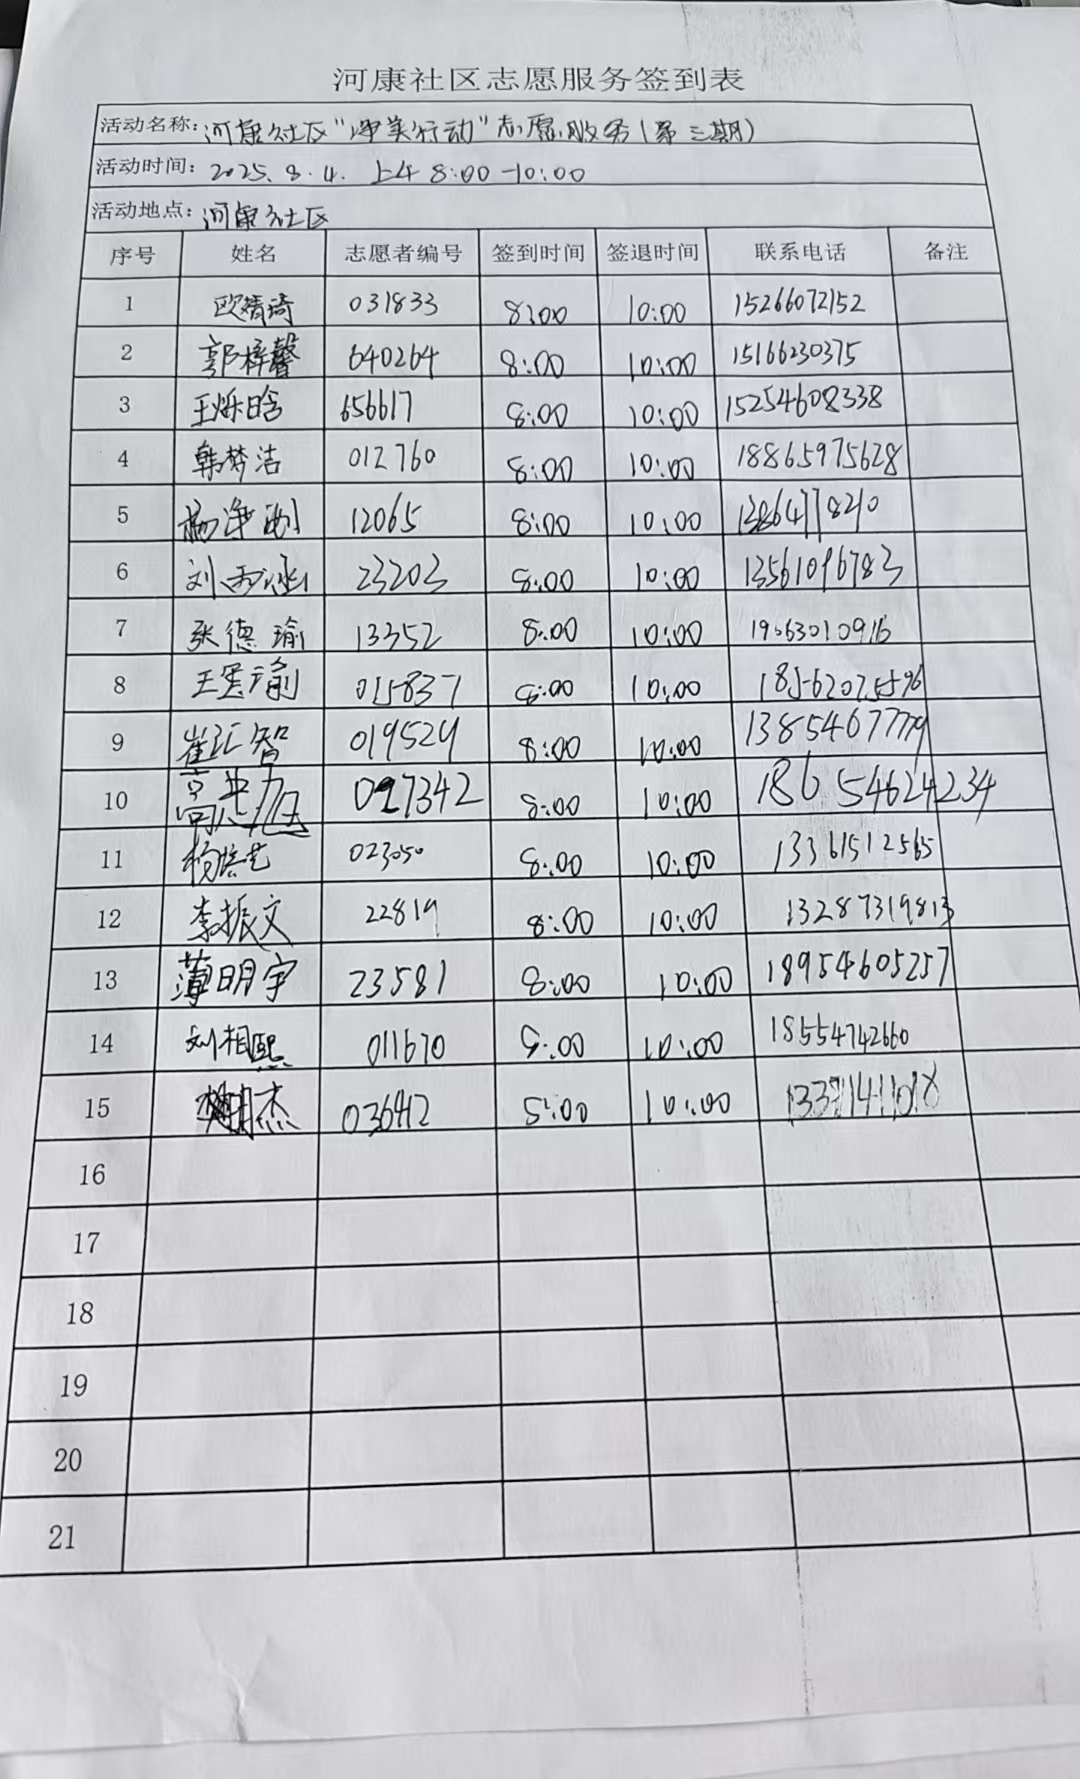 河康社区志愿服务签到表
活动名称：河康社区“净美行动”志愿服务（第三期）
活动时间：2025.8.4. 上午 8:00-10:00
活动地点：河康社区
序号 姓名 志愿者编号 签到时间 签退时间 联系电话 备注
1 欧婧琦 031833 8:00 10:00 15266072152
2 郭梓馨 640264 8:00 10:00 15166230375
3 王烁晗 656617 8:00 10:00 15254608338
4 韩梦洁 012760 8:00 10:00 18865975628
5 12065 8:00 10:00
6 刘雨涵 23203 8:00 10:00 13561096783
7 张德瑜 13352 8:00 10:00 19063010916
8 015837 8:00 10:00 18562075596
9 崔汇智 019529 8:00 10:00
10 8:00 10:00 18654624234
11 杨培艺 023050 8:00 10:00 13361512565
12 李振文 22819 8:00 10:00 13287319813
13 薄明宇 23581 8:00 10:00 18954605257
14 刘相熙 011670 8:00 10:00 18554742660
15 036412 8:00 10:00
16
17
18
19
20
21